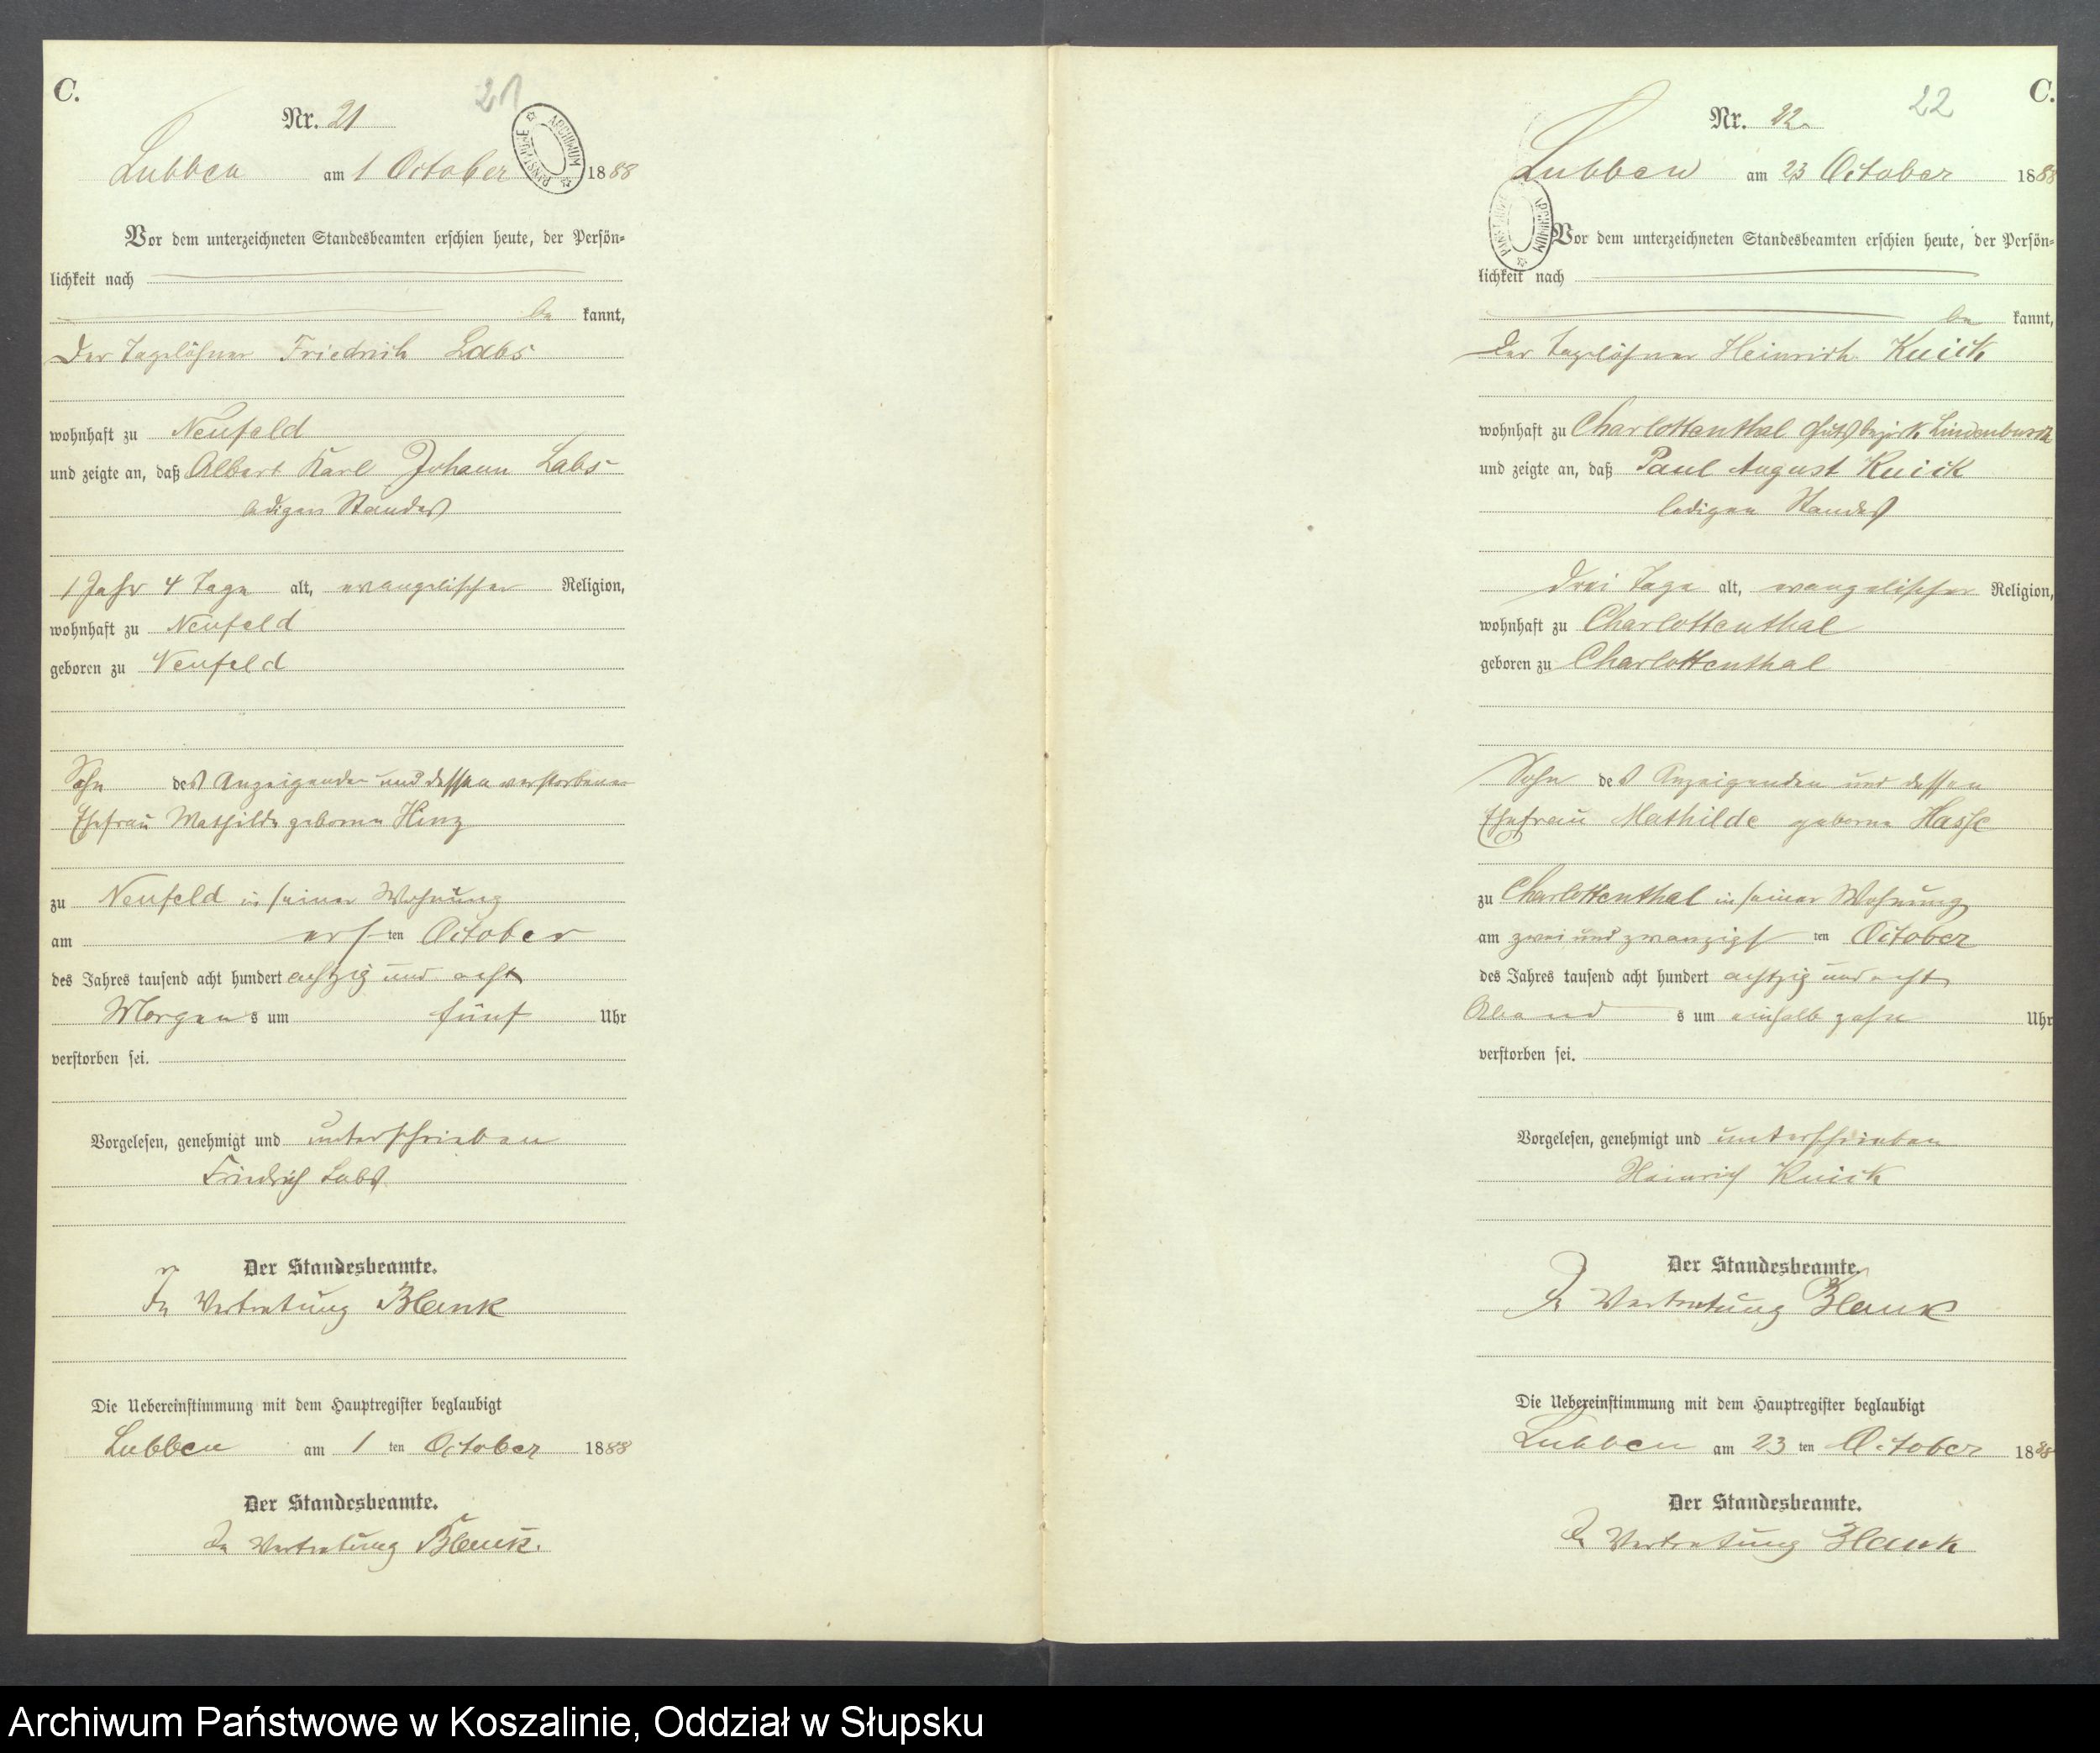 C.
21
Nr. 21
Lubben am 1 October 1888
ARCHIWUM PAŃSTWOWE
Vor dem unterzeichneten Standesbeamten erschien heute, der Persön-
lichkeit nach
be kannt,
Der Tagelöhner Friedrich Labs
wohnhaft zu Neufeld
und zeigte an, daß Albert Karl Johann Labs
ledigen Standes
1 Jahr 4 Tage alt, evangelischer Religion,
wohnhaft zu Neufeld
geboren zu Neufeld
Sohn des Anzeigenden und dessen verstorbenen
Ehefrau Mathilde geborene Hinz
zu Neufeld in seiner Wohnung
am ersten October
des Jahres tausend acht hundert achtzig und acht
Morgens um fünf Uhr
verstorben sei.
Vorgelesen, genehmigt und unterschrieben
Friedrich Labs
Der Standesbeamte.
In Vertretung Blank
Die Uebereinstimmung mit dem Hauptregister beglaubigt
Lubben am 1 ten October 1888
Der Standesbeamte.
In Vertretung Blank.
C.
22
Nr. 22
Lubben am 23 October 1888
ARCHIWUM PAŃSTWOWE
Vor dem unterzeichneten Standesbeamten erschien heute, der Persön-
lichkeit nach
be kannt,
Der Tagelöhner Heinrich Knick
wohnhaft zu Charlottenthal Gutsbezirk Lindenbusch
und zeigte an, daß Paul August Knick
ledigen Standes
drei Tage alt, evangelischer Religion,
wohnhaft zu Charlottenthal
geboren zu Charlottenthal
Sohn des Anzeigenden und dessen
Ehefrau Mathilde geborne Hasse
zu Charlottenthal in seiner Wohnung
am zwei und zwanzigsten October
des Jahres tausend acht hundert achtzig und acht
Abends um einhalb zehn Uhr
verstorben sei.
Vorgelesen, genehmigt und unterschrieben
Heinrich Knick
Der Standesbeamte.
In Vertretung Blank
Die Uebereinstimmung mit dem Hauptregister beglaubigt
Lubben am 23 ten October 1888
Der Standesbeamte.
In Vertretung Blank
Archiwum Państwowe w Koszalinie, Oddział w Słupsku